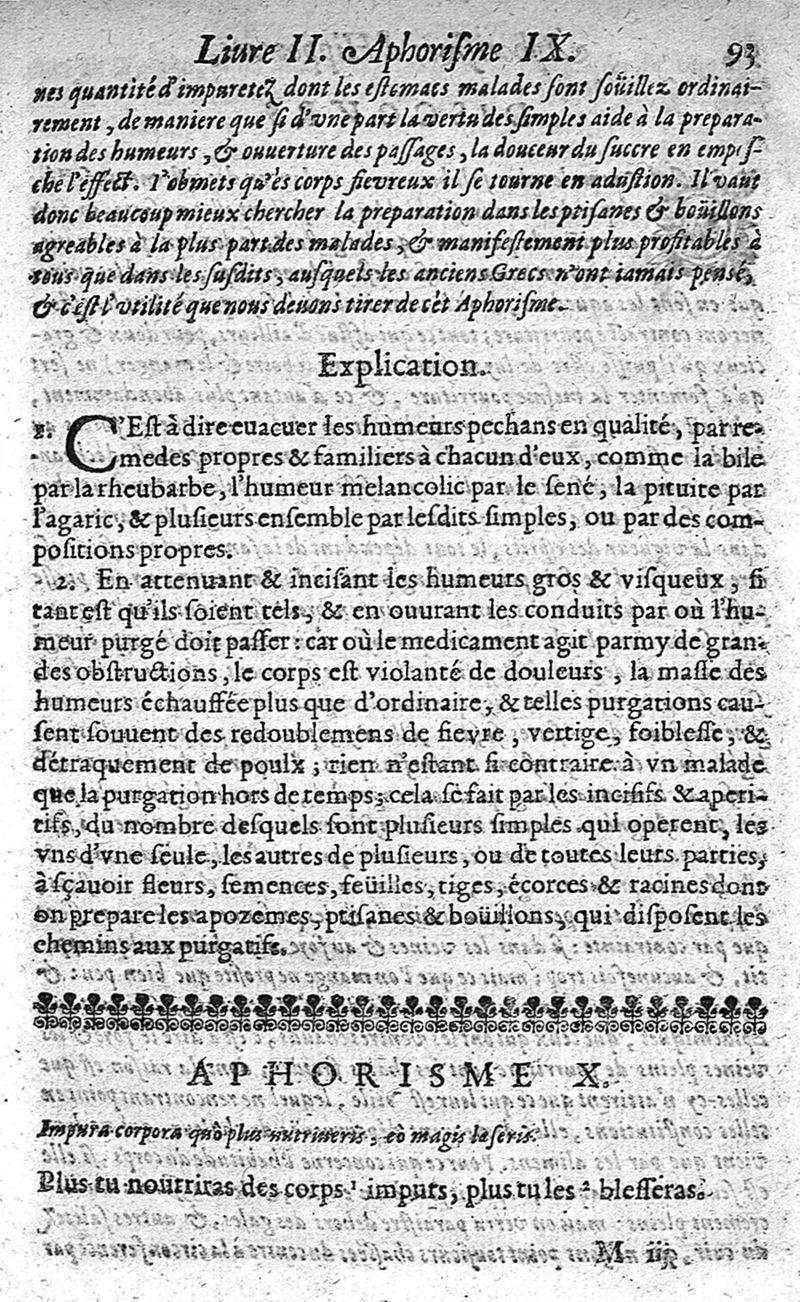 Liure II. Aphoriſme IX. 93
nes quantité d'impuretez dont les eſtomacs malades ſont ſoüillez ordinai-
rement, de maniere que ſi d'vne part la vertu des ſimples aide à la prepara-
tion des humeurs, & ouuerture des paſſages, la douceur du ſuccre en empeſ-
che l'effect. I'obmets qu'és corps fievreux il ſe tourne en aduſtion. Il vaut
donc beaucoup mieux chercher la preparation dans les ptiſanes & boüillons
agreables à la plus part des malades, & manifeſtement plus profitables à
tous que dans les ſuſdits, auſquels les anciens Grecs n'ont iamais penſé,
& c'eſt l'vtilité que nous deuons tirer de cét Aphoriſme.
Explication.
1. C'Eſt à dire euacuer les humeurs pechans en qualité, par re-
medes propres & familiers à chacun d'eux, comme la bile
par la rheubarbe, l'humeur melancolic par le ſené, la pituite par
l'agaric, & pluſieurs enſemble par leſdits ſimples, ou par des com-
poſitions propres.
2. En attenuant & inciſant les humeurs gros & viſqueux, ſi
tant eſt qu'ils ſoient tels, & en ouurant les conduits par où l'hu-
meur purgé doit paſſer: car où le medicament agit parmy de gran-
des obſtructions, le corps eſt violanté de douleurs, la maſſe des
humeurs échauffée plus que d'ordinaire, & telles purgations cau-
ſent ſouuent des redoublemens de fievre, vertige, foibleſſe, &
détraquement de poulx; rien n'eſtant ſi contraire à vn malade
que la purgation hors de temps; cela ſe fait par les inciſifs & aperi-
tifs, du nombre deſquels ſont pluſieurs ſimples qui operent, les
vns d'vne ſeule, les autres de pluſieurs, ou de toutes leurs parties,
à ſçauoir fleurs, ſemences, feüilles, tiges, écorces & racines dont
on prepare les apozemes, ptiſanes & boüillons, qui diſpoſent les
chemins aux purgatifs.
APHORISME X.
Impura corpora quò plus nutriueris, eò magis laſeris.
Plus tu nourriras des corps ¹ impurs, plus tu les ² bleſſeras.
M iij